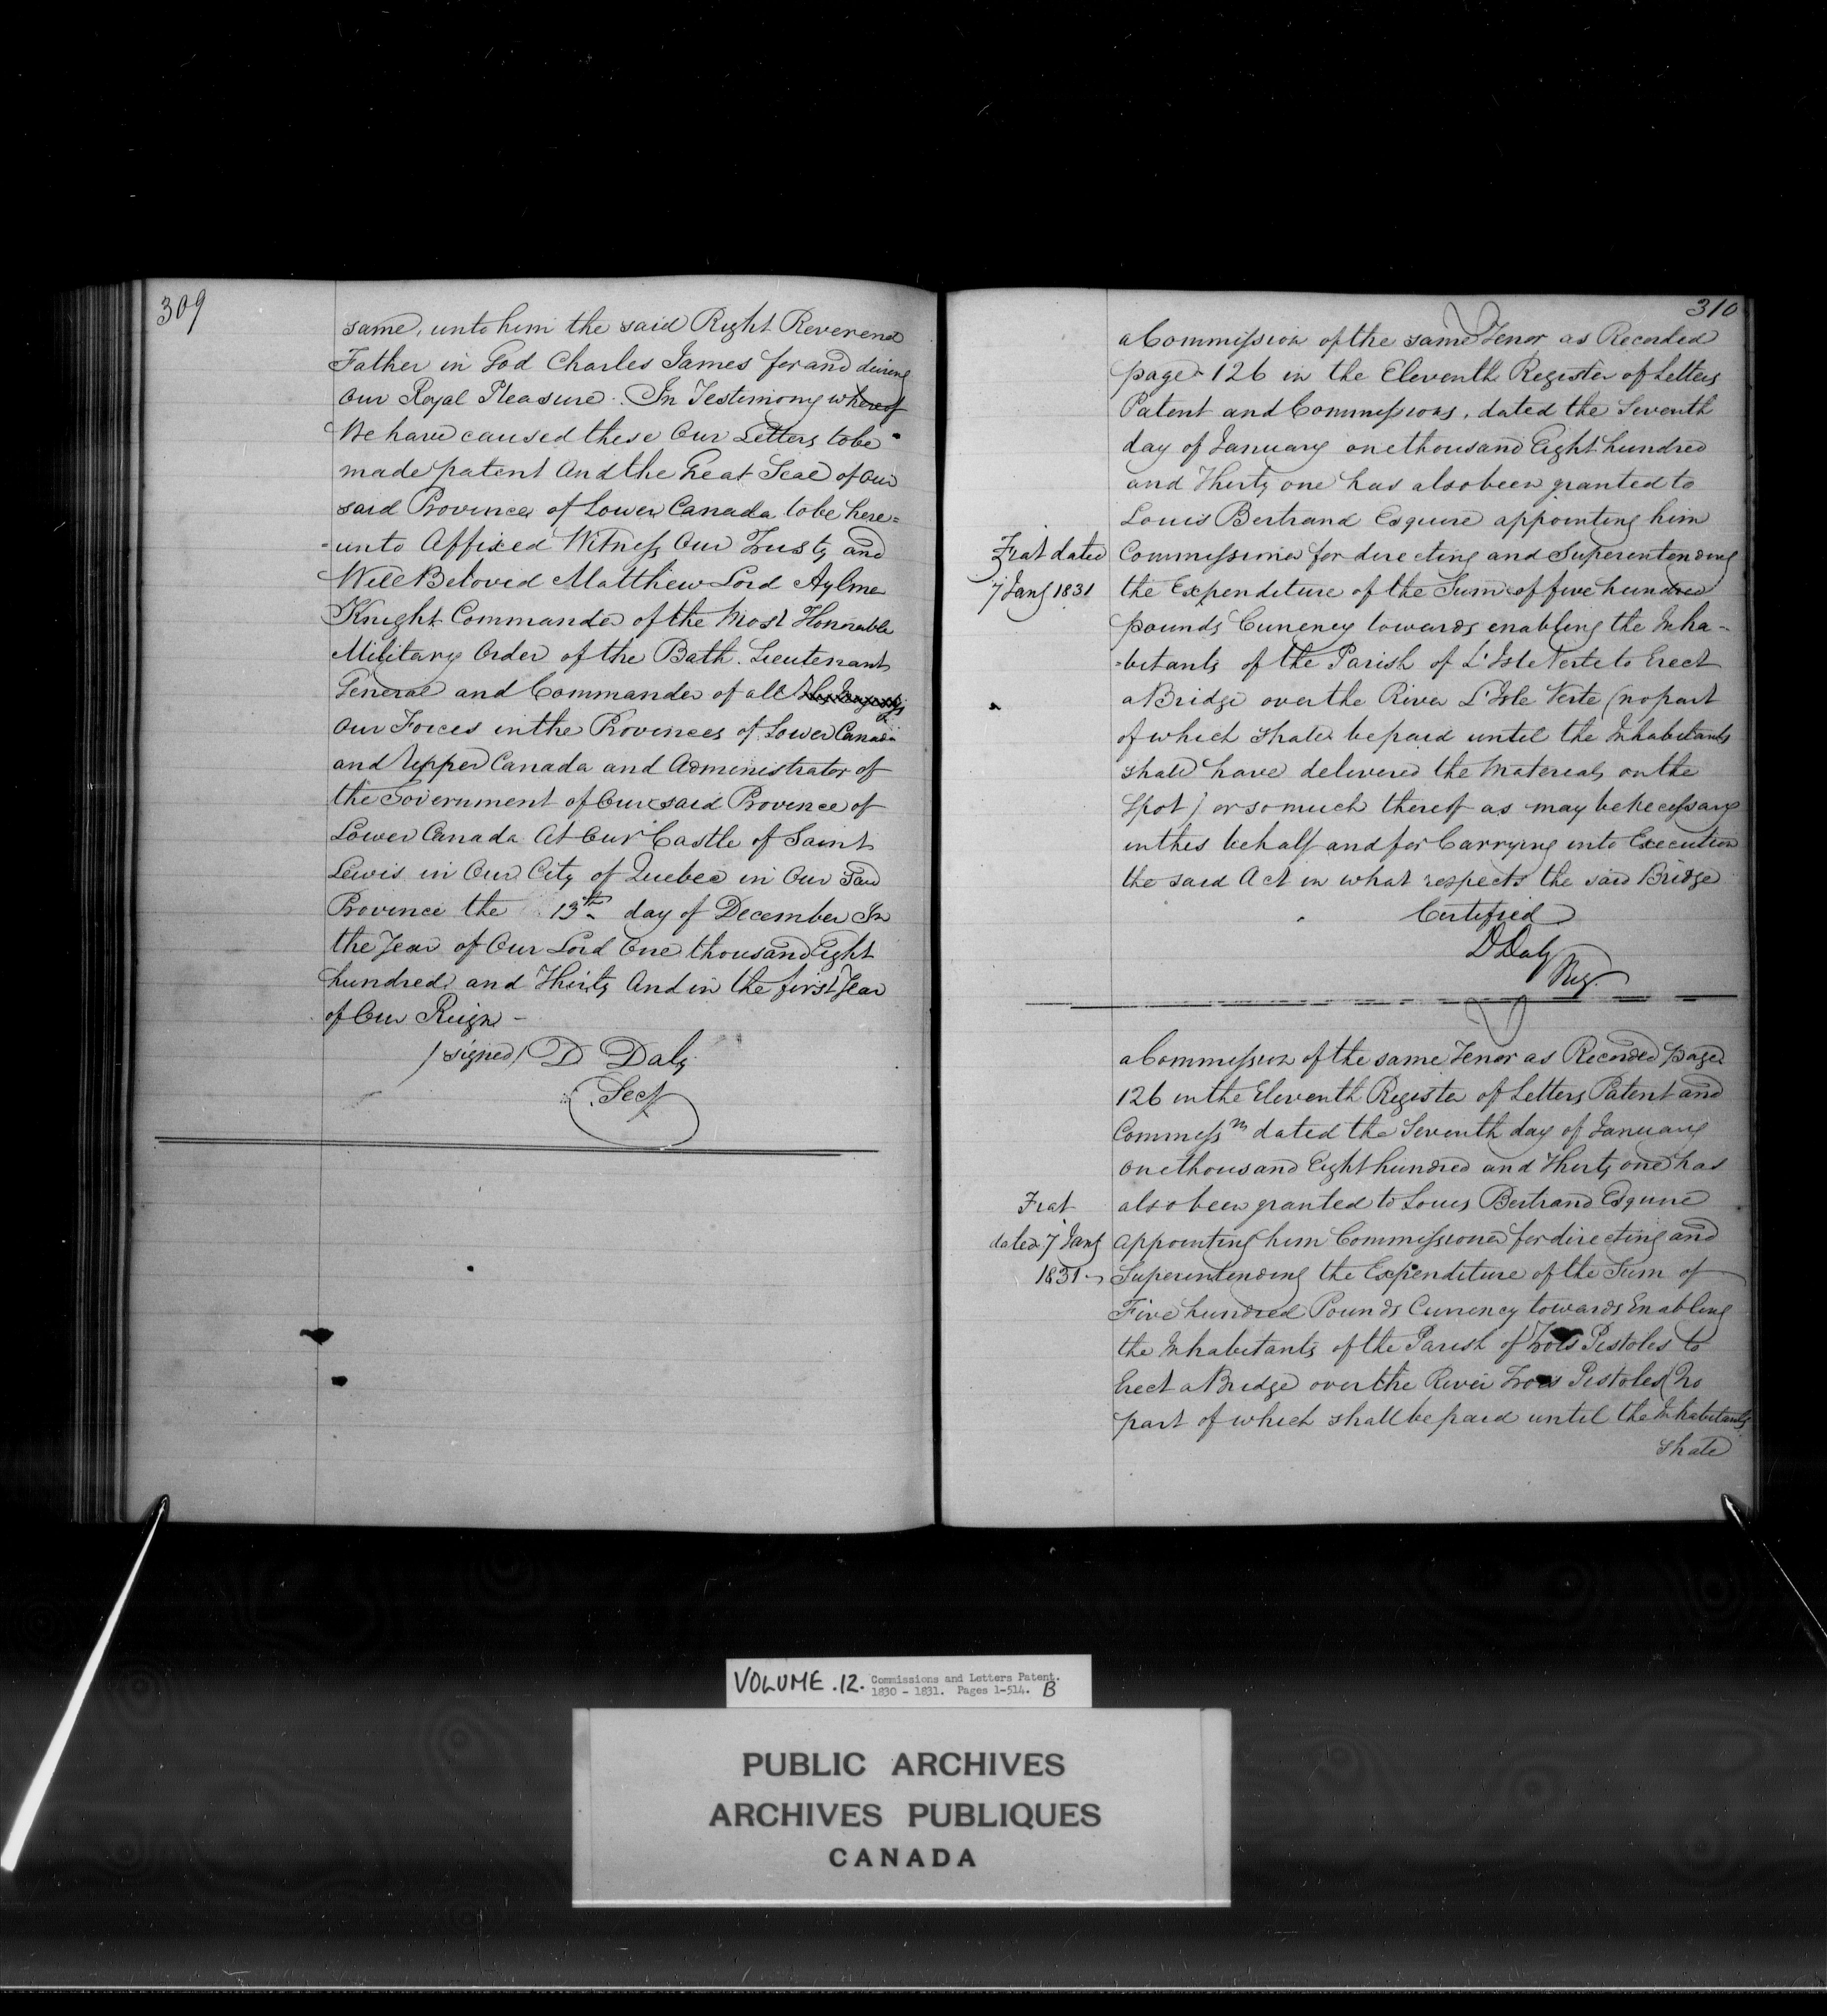 309
same, unto him the said Right Reverend
Father in God Charles James for and during
Our Royal Pleasure. In Testimony whereof
We have caused these Our Letters to be
made patent And the Great Seal of Our
said Province of Lower Canada to be here=
=unto Affixed Witness Our Trusty and
Well Beloved Matthew Lord Aylmer
Knight Commander of the Most Honorable
Military Order of the Bath. Lieutenant
General and Commander of all
Our Forces in the Provinces of Lower Canada
and Upper Canada and Administrator of
the Government of Our said Province of
Lower Canada At Our Castle of Saint
Lewis in Our City of Quebec in Our Said
Province the 13th day of December In
the Year of Our Lord One thousand Eight
hundred and Thirty And in the first Year
of Our Reign -
/signed/ D Daly
Secy
310
a Commission of the same Tenor as Recorded
page 126 in the Eleventh Register of Letters
Patent and Commissions, dated the Seventh
day of January one thousand Eight hundred
and Thirty one has also been granted to
Louis Bertrand Esquire appointing him
Fiat dated
7 Jany 1831
Commissioner for directing and Superintending
the Expenditure of the Sum of five hundred
pounds Currency towards enabling the Inha-
-bitants of the Parish of L'Isle Verte to Erect
a Bridge over the River L'Isle Verte (no part
of which shall be paid until the Inhabitants
shall have delivered the Materials on the
Spot) or so much thereof as may be necessary
in this behalf and for Carrying into Execution
the said Act in what respects the said Bridge
Certified
D Daly
Reg.
a Commission of the same Tenor as Recorded page
126 in the Eleventh Register of Letters Patent and
Commissns dated the Seventh day of January
one thousand Eight hundred and Thirty one has
Fiat
dated 7 Jany
1831
also been granted to Louis Bertrand Esquire
appointing him Commissioner for directing and
Superintending the Expenditure of the Sum of
Five hundred Pounds Currency towards Enabling
the Inhabitants of the Parish of Trois Pistoles to
Erect a Bridge over the River Trois Pistoles (No
part of which shall be paid until the Inhabitants
shall
VOLUME .12. Commissions and Letters Patent.
1830 - 1831. Pages 1-514. B
PUBLIC ARCHIVES
ARCHIVES PUBLIQUES
CANADA